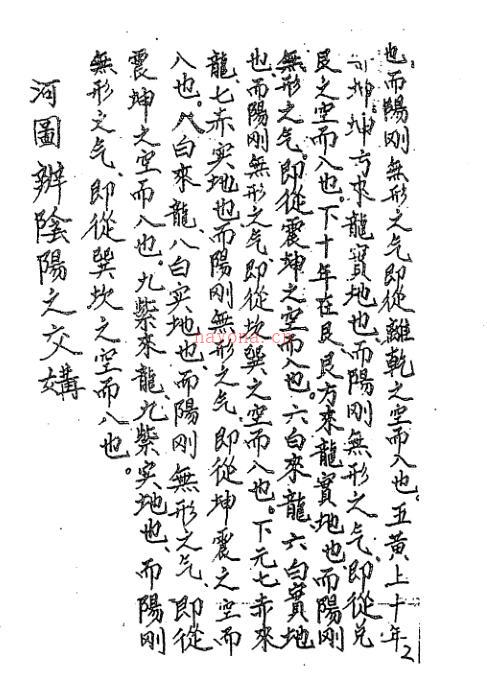 也。而陽刚無形之气即從離乾之空而入也。五黄上十年
坤坤方來龍實地也。而陽刚無形之气、即從兑
艮之空而入也。下十年在艮艮方來龍實地也、而陽刚
無形之气、即從震坤之空而入也。六白來龍、六白實地
也、而陽刚無形之气、即從坎巽之空而入也。下元七赤來
龍、七赤实地也、而陽刚無形之气、即從坤震之空而
入也。八白來龍、八白实地也、而陽刚無形之气、即從
震坤之空而入也。九紫來龍、九紫实地也、而陽刚
無形之气、即從巽坎之空而入也。
河圖辨陰陽之交媾
2
nayona.cn